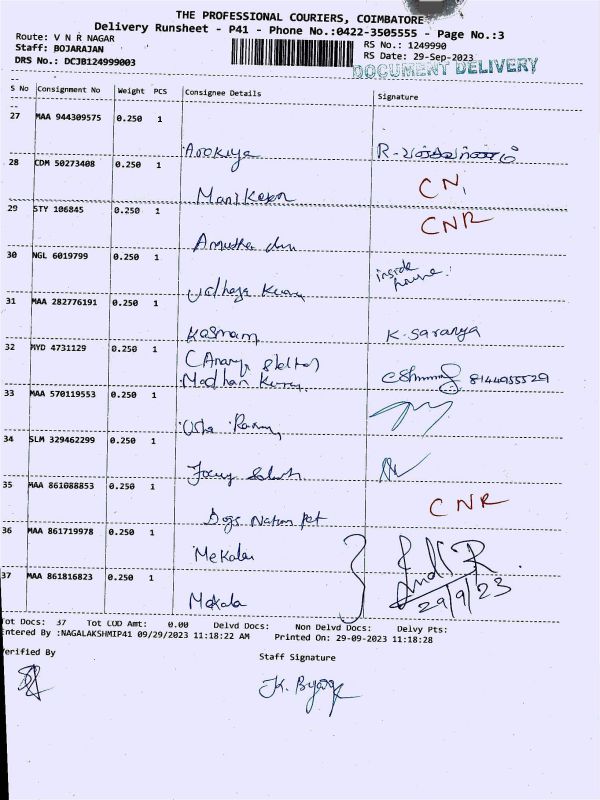 THE PROFESSIONAL COURIERS, COIMBATORE
Delivery Runsheet - P41 - Phone No.:0422-3505555 - Page No.:3
Route: V N R NAGAR
RS No.: 1249990
Staff: BOJARAJAN
RS Date: 29-Sep-2023
DRS No.: DCJB124999003
DOCUMENT DELIVERY
S No Consignment No Weight PCS Consignee Details Signature
27 MAA 944309575 0.250 1
Arokiya R-
28 CDM 50273408 0.250 1
CN,
29 STY 106845 0.250 1
CNR
Amutha
30 NGL 6019799 0.250 1
inside
house
31 MAA 282776191 0.250 1
K. Saranya
32 MYD 4731129 0.250 1
Madhan 8144955529
33 MAA 570119553 0.250 1
Usha
34 SLM 329462299 0.250 1
35 MAA 861088853 0.250 1
CNR
Dogs Nation Pet
36 MAA 861719978 0.250 1
Mekala
37 MAA 861816823 0.250 1
Mekala 29/9/23
Tot Docs: 37 Tot COD Amt: 0.00 Delvd Docs: Non Delvd Docs: Delvy Pts:
Entered By :NAGALAKSHMIP41 09/29/2023 11:18:22 AM Printed On: 29-09-2023 11:18:28
Verified By
Staff Signature